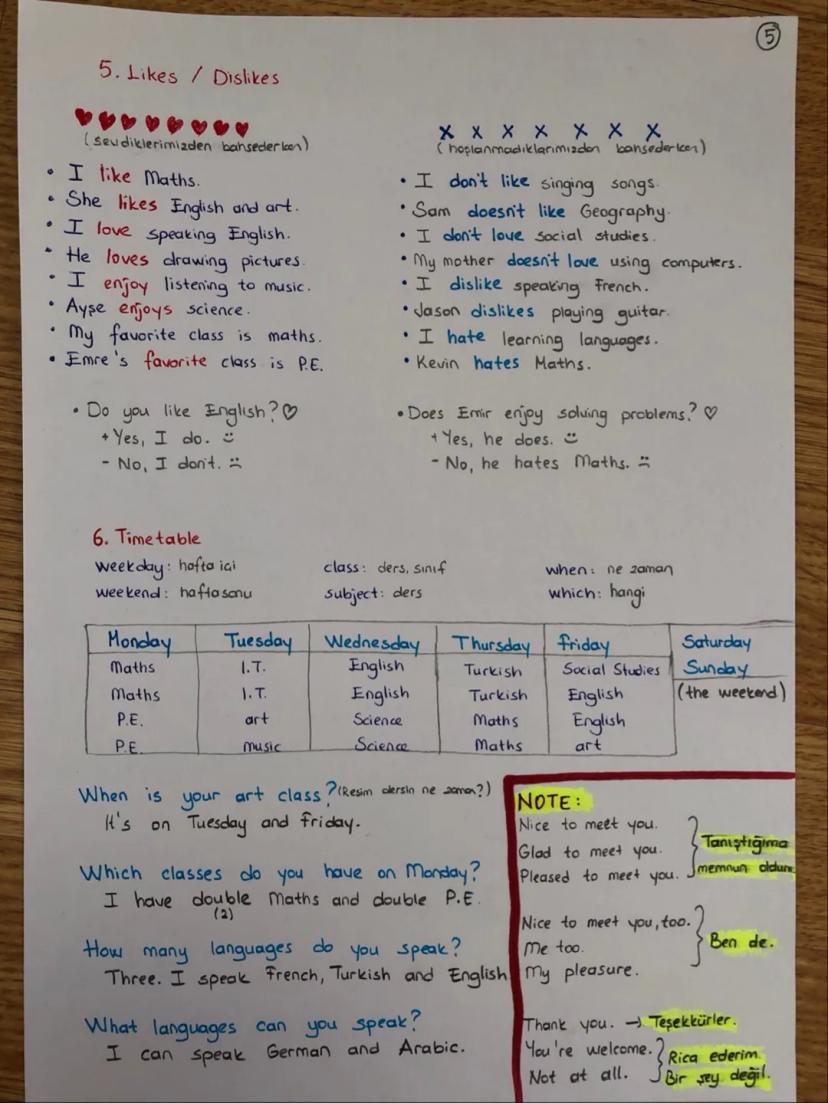 5
5. Likes / Dislikes
(sevdiklerimizden bahsederken)
• I like Maths.
• She likes English and art.
• I love speaking English.
• He loves drawing pictures.
• I enjoy listening to music.
• Ayşe enjoys science.
• My favorite class is maths.
• Emre's favorite class is P.E.
x x x x x x x
(hoşlanmadıklarımızdan bahsederken)
• I don't like singing songs.
• Sam doesn't like Geography.
• I don't love social studies.
• My mother doesn't love using computers.
• I dislike speaking French.
• Jason dislikes playing guitar.
• I hate learning languages.
• Kevin hates Maths.
• Do you like English?
+ Yes, I do.
- No, I don't.
• Does Emir enjoy solving problems?
+ Yes, he does.
- No, he hates Maths.
6. Timetable
weekday: hafta içi class: ders, sınıf when: ne zaman
weekend: haftasonu subject: ders which: hangi
Monday Tuesday Wednesday Thursday Friday Saturday
Maths I.T. English Turkish Social Studies Sunday
Maths I.T. English Turkish English (the weekend)
P.E. art Science Maths English
P.E. music Science Maths art
When is your art class? (Resim dersin ne zaman?)
It's on Tuesday and Friday.
Which classes do you have on Monday?
I have double Maths and double P.E.
(2)
How many languages do you speak?
Three. I speak French, Turkish and English
What languages can you speak?
I can speak German and Arabic.
NOTE:
Nice to meet you.
Glad to meet you.
Pleased to meet you.
Tanıştığıma
memnun oldum
Nice to meet you, too.
Me too.
My pleasure.
Ben de.
Thank you. → Teşekkürler.
You're welcome.
Not at all.
Rica ederim.
Bir şey değil.